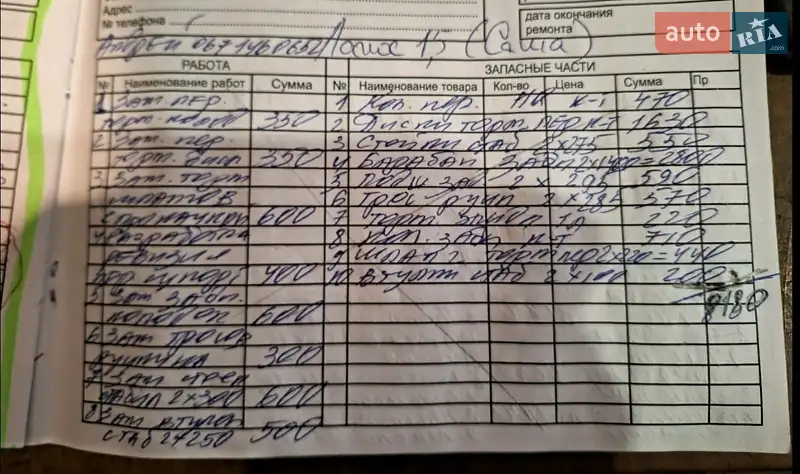 Адрес
№ телефона
дата окончания
ремонта
auto RIA
.com
Андрей 067 1460652 Логис 1,5 (Саша)
РАБОТА
ЗАПАСНЫЕ ЧАСТИ
№ Наименование работ Сумма № Наименование товара Кол-во Цена Сумма Пр
1 Зам. пер. 1 Кол. пер. к-т 470
торм. колод 350 2 Диски торм. пер к-т 1630
2 Зам. пер. 3 Стойки стаб 2x275 550
торм. диск 350 4 Барабан зад 2x1400=2800
3 Зам. торм 5 Подш зад 2 x 295 590
шлангов 6 Трос ручн 2 x 285 570
с прокачкой 600 7 Торм. 1л 220
4 Разработка 8 Кол. задн к-т 710
ревизия 9 Шланг торм пер 2x220=440
суппорт 400 10 Втулки стаб 2x100 200
5 Зам задн. 8180
колодок 600
6 Зам тросов
ручника 300
7 Зам стоек
стаб 2x300 600
8 Зам втулок
стаб 2x250 500